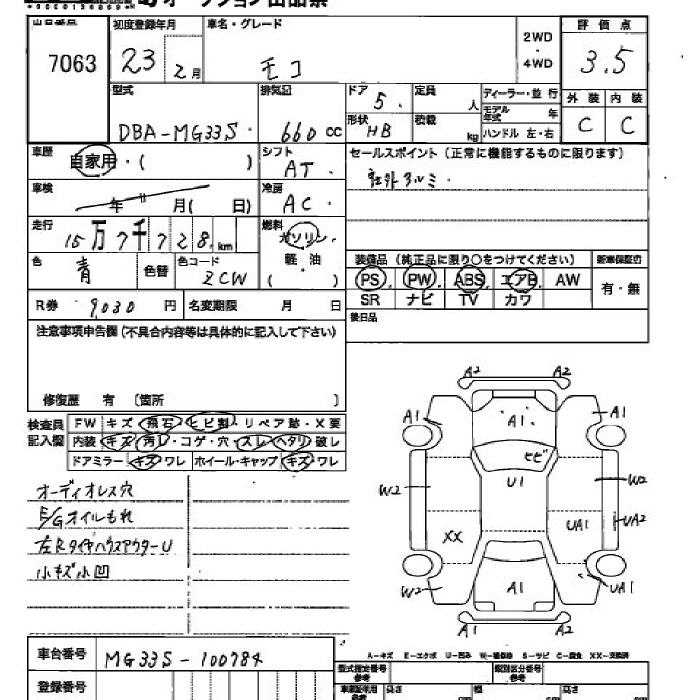 オークション出品票
出品番号 初度登録年月 車名・グレード 2WD・4WD 評価点
7063 23 2月 モコ 3.5
型式 排気記 ドア 定員 ディーラー・並行 外装 内装
5. 人 モデル年式 年 C C
DBA-MG33S 660 CC 形状 HB 積載 kg ハンドル 左・右
車歴 自家用・( ) シフト AT. セールスポイント(正常に機能するものに限ります)
車検 年 月( 日) 冷房 AC. 社外アルミ.
走行 15万7千728km 燃料 ガソリン・軽・油 ( )
色 青 色替 色コード ZCW 装備品(純正品に限り○をつけてください) 新車保証書
PS PW ABS エアB AW 有・無
SR ナビ TV カワ
R券 9,030 円 名変期限 月 日 後日品
注意事項申告欄(不具合内容等は具体的に記入して下さい)
修復歴 有 〔箇所 〕
検査員記入欄 FW キズ・飛石・ヒビ割・リペア跡・X要
内装 キズ・汚レ・コゲ・穴・スレ・ヘタリ・破レ
ドアミラー キズ・ワレ ホイール・キャップ キズ・ワレ
オーディオレス穴
E/Gオイルもれ
左RタイヤハウスアウターU
小キズ小凹
A2 A2
A1 A1 A1
ヒビ
W2 U1 W2
XX UA1 UA2
W2 A1 UA1
A1 A2
A-キズ E-エクボ U-凹み W-補修跡 S-サビ C-腐食 XX-交換済
車台番号 MG33S-100784
型式指定番号 参考 類別区分番号 参考
登録番号 長さ cm 幅 cm 高さ cm